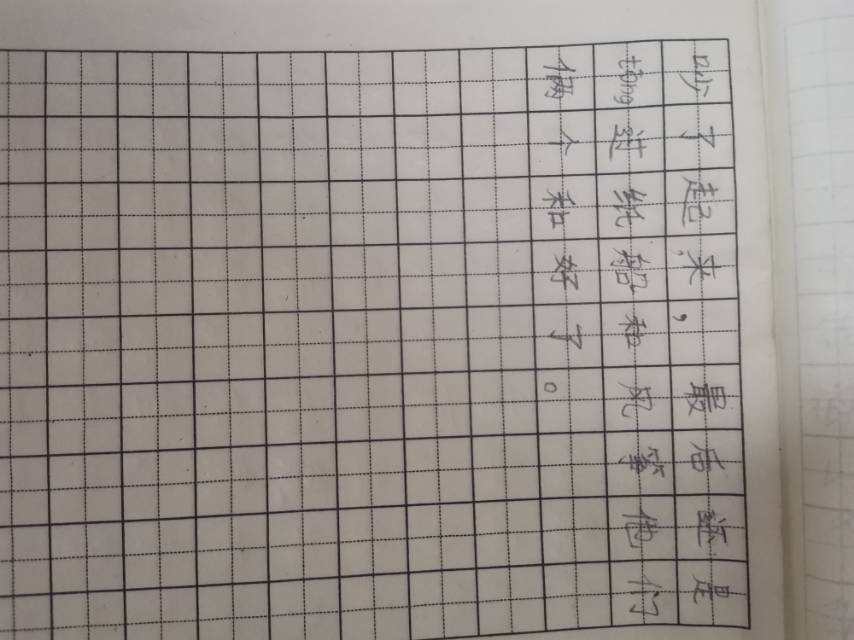 吵了起来，最后还是
tōng过纸船和风筝他们
俩个和好了。